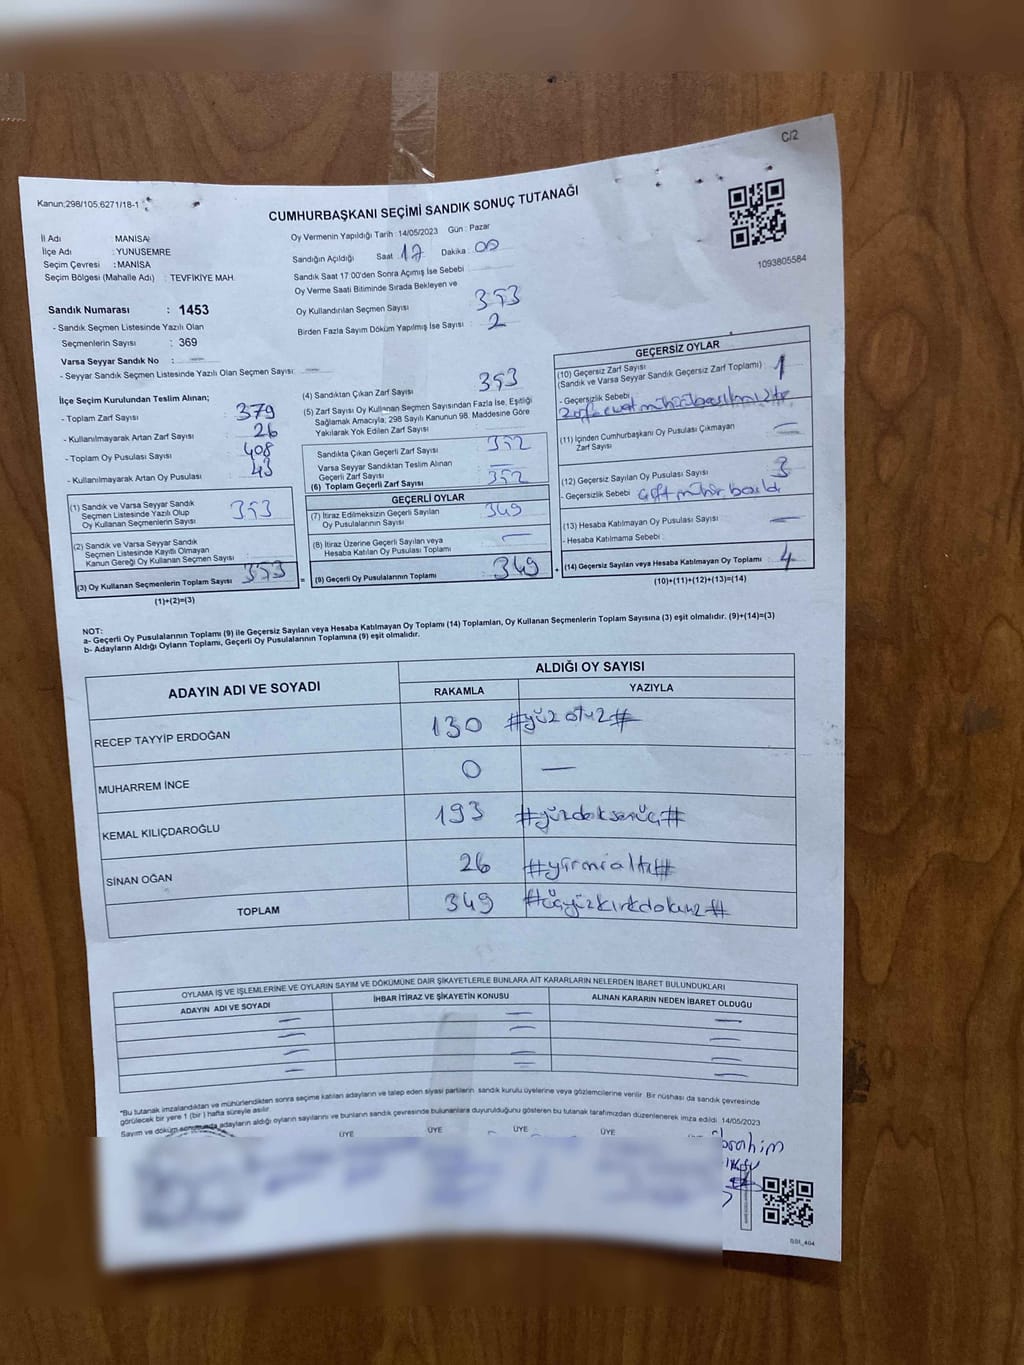 C/2
Kanun:298/105,6271/18-1
CUMHURBAŞKANI SEÇİMİ SANDIK SONUÇ TUTANAĞI
1093805584
İl Adı : MANİSA
İlçe Adı : YUNUSEMRE
Seçim Çevresi : MANİSA
Seçim Bölgesi (Mahalle Adı) : TEVFİKİYE MAH.
Oy Vermenin Yapıldığı Tarih : 14/05/2023 Gün : Pazar
Sandığın Açıldığı Saat : 17 Dakika : 00
Sandık Saat 17.00'den Sonra Açımış İse Sebebi :
Oy Verme Saati Bitiminde Sırada Bekleyen ve
Oy Kullandırılan Seçmen Sayısı : 353
Birden Fazla Sayım Döküm Yapılmış İse Sayısı : 2
Sandık Numarası : 1453
- Sandık Seçmen Listesinde Yazılı Olan
Seçmenlerin Sayısı : 369
Varsa Seyyar Sandık No :
- Seyyar Sandık Seçmen Listesinde Yazılı Olan Seçmen Sayısı:
İlçe Seçim Kurulundan Teslim Alınan;
- Toplam Zarf Sayısı : 379
- Kullanılmayarak Artan Zarf Sayısı : 26
- Toplam Oy Pusulası Sayısı : 408
- Kullanılmayarak Artan Oy Pusulası : 43
(1) Sandık ve Varsa Seyyar Sandık
Seçmen Listesinde Yazılı Olup
Oy Kullanan Seçmenlerin Sayısı : 353
(2) Sandık ve Varsa Seyyar Sandık
Seçmen Listesinde Kayıtlı Olmayan
Kanun Gereği Oy Kullanan Seçmen Sayısı :
(3) Oy Kullanan Seçmenlerin Toplam Sayısı : 353 =
(1)+(2)=(3)
(4) Sandıktan Çıkan Zarf Sayısı : 353
(5) Zarf Sayısı Oy Kullanan Seçmen Sayısından Fazla İse, Eşitliği
Sağlamak Amacıyla; 298 Sayılı Kanunun 98. Maddesine Göre
Yakılarak Yok Edilen Zarf Sayısı :
Sandıkta Çıkan Geçerli Zarf Sayısı : 352
Varsa Seyyar Sandıktan Teslim Alınan
Geçerli Zarf Sayısı : —
(6) Toplam Geçerli Zarf Sayısı : 352
GEÇERLİ OYLAR
(7) İtiraz Edilmeksizin Geçerli Sayılan
Oy Pusulalarının Sayısı : 349
(8) İtiraz Üzerine Geçerli Sayılan veya
Hesaba Katılan Oy Pusulası Toplamı : —
(9) Geçerli Oy Pusulalarının Toplamı : 349 +
GEÇERSİZ OYLAR
(10) Geçersiz Zarf Sayısı
(Sandık ve Varsa Seyyar Sandık Geçersiz Zarf Toplamı) : 1
- Geçersizlik Sebebi :
(11) İçinden Cumhurbaşkanı Oy Pusulası Çıkmayan
Zarf Sayısı : —
(12) Geçersiz Sayılan Oy Pusulası Sayısı : 3
- Geçersizlik Sebebi : çift mühür basıldı
(13) Hesaba Katılmayan Oy Pusulası Sayısı : —
- Hesaba Katılmama Sebebi :
(14) Geçersiz Sayılan veya Hesaba Katılmayan Oy Toplamı : 4
(10)+(11)+(12)+(13)=(14)
NOT:
a- Geçerli Oy Pusulalarının Toplamı (9) ile Geçersiz Sayılan veya Hesaba Katılmayan Oy Toplamı (14) Toplamları, Oy Kullanan Seçmenlerin Toplam Sayısına (3) eşit olmalıdır. (9)+(14)=(3)
b- Adayların Aldığı Oyların Toplamı, Geçerli Oy Pusulalarının Toplamına (9) eşit olmalıdır.
ADAYIN ADI VE SOYADI ALDIĞI OY SAYISI
RAKAMLA YAZIYLA
RECEP TAYYİP ERDOĞAN 130 #yüz otuz#
MUHARREM İNCE 0 —
KEMAL KILIÇDAROĞLU 193 #yüzdoksanüç#
SİNAN OĞAN 26 #yirmialtı#
TOPLAM 349 #üçyüzkırkdokuz#
OYLAMA İŞ VE İŞLEMLERİNE VE OYLARIN SAYIM VE DÖKÜMÜNE DAİR ŞİKAYETLERLE BUNLARA AİT KARARLARIN NELERDEN İBARET BULUNDUKLARI
ADAYIN ADI VE SOYADI İHBAR İTİRAZ VE ŞİKAYETİN KONUSU ALINAN KARARIN NEDEN İBARET OLDUĞU
— — —
— — —
— — —
— — —
*Bu tutanak imzalandıktan ve mühürlendikten sonra seçime katılan adayların ve talep eden siyasi partilerin sandık kurulu üyelerine veya gözlemcilerine verilir. Bir nüshası da sandık çevresinde
görülecek bir yere 1 (bir) hafta süreyle asılır.
Sayım ve döküm sonunda adayların aldığı oyların sayılarını ve bunların sandık çevresinde bulunanlara duyurulduğunu gösteren bu tutanak tarafımızdan düzenlenerek imza edildi. 14/05/2023
ÜYE ÜYE ÜYE ÜYE
İbrahim